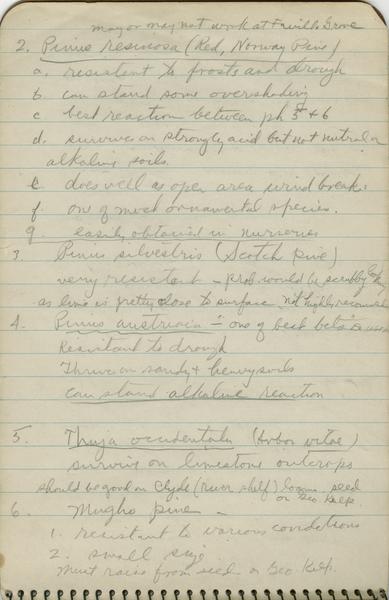 may or may not work at Faville Grove
2. Pinus resinosa (Red, Norway Pine)
a. resistent to frosts and drough
b can stand some overshading
c best reaction between ph 5 + 6
d. survives on strongly acid but not nutral or
alkaline soils.
e does well as open area wind break.
f one of most ornamental species.
g easily obtained in nurseries
3 Pinus silvestris (Scotch pine)
very resistent - prob. would be scrubby
as lime is pretty close to surface. Not highly
4. Pinus austriaca - "one of best bets"
Resistant to drough
Thrive on sandy + heavy soils
can stand alkaline reaction
5. Thuja occidentalis (Arbor vitae)
survive on limestone outcrops
should be good on Clyde (river shelf) loams. seed
or Geo. Kelp.
6. Mugho pine -
1. resistent to various conditions
2. small size
Must raise from seed or Geo Kelp.